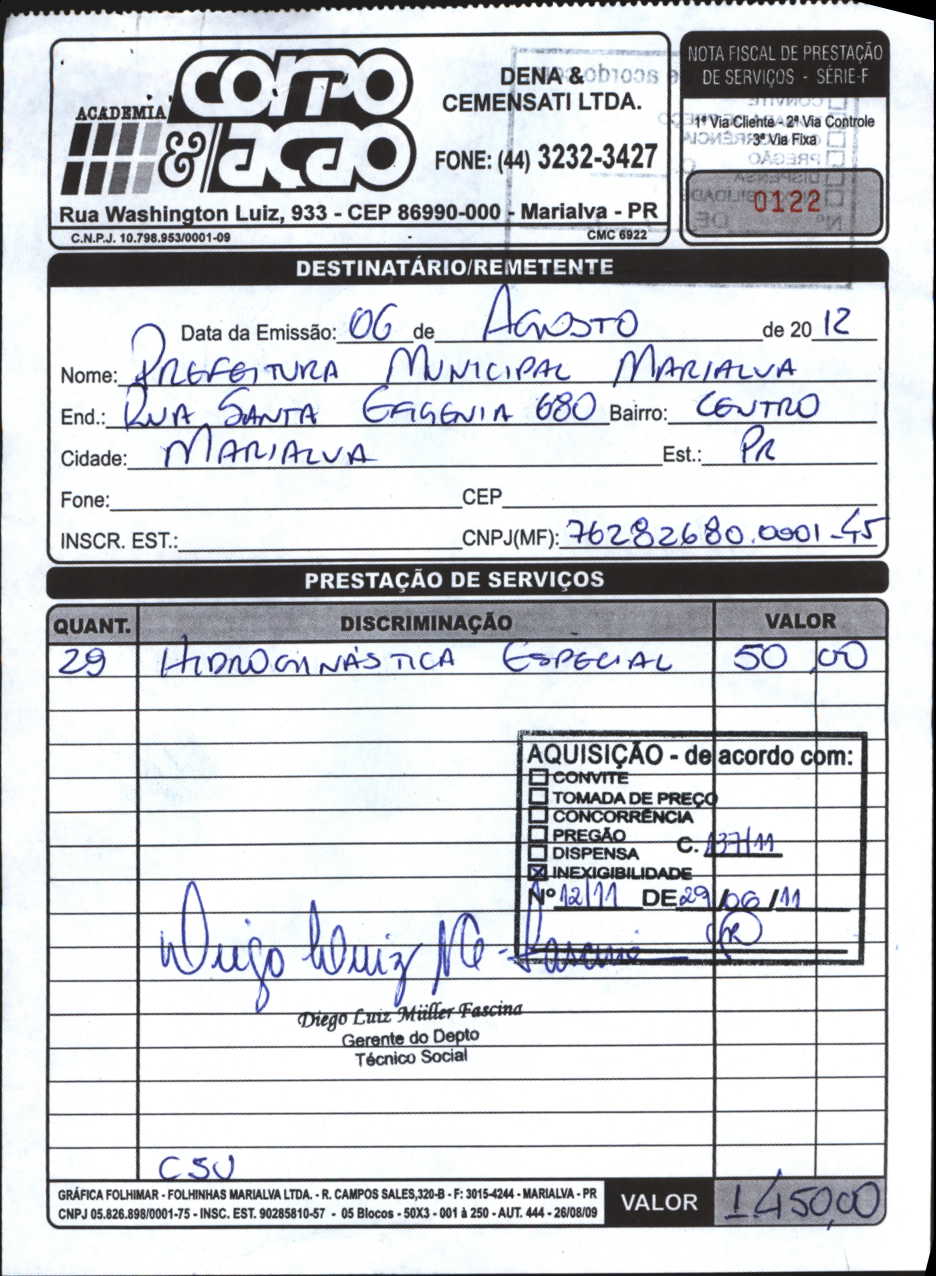 ACADEMIA
CORPO
& AÇÃO
DENA &
CEMENSATI LTDA.
FONE: (44) 3232-3427
Rua Washington Luiz, 933 - CEP 86990-000 - Marialva - PR
C.N.P.J. 10.798.953/0001-09 CMC 6922
NOTA FISCAL DE PRESTAÇÃO
DE SERVIÇOS - SÉRIE-F
1ª Via Cliente - 2ª Via Controle
3ª Via Fixa
0122
DESTINATÁRIO/REMETENTE
Data da Emissão: 06 de AGOSTO de 20 12
Nome: PREFEITURA MUNICIPAL MARIALVA
End.: RUA SANTA EFIGENIA 680 Bairro: CENTRO
Cidade: MARIALVA Est.: PR
Fone: CEP
INSCR. EST.: CNPJ(MF): 76282680.0001-45
PRESTAÇÃO DE SERVIÇOS
QUANT. DISCRIMINAÇÃO VALOR
29 HIDROGINÁSTICA ESPECIAL 50,00
AQUISIÇÃO - de acordo com:
CONVITE
TOMADA DE PREÇO
CONCORRÊNCIA
PREGÃO
DISPENSA C. 137/11
INEXIGIBILIDADE
Nº 12/11 DE 29/06/11
Diego Luiz M. Fascina
Diego Luiz Müller Fascina
Gerente do Depto
Técnico Social
CSU
GRÁFICA FOLHIMAR - FOLHINHAS MARIALVA LTDA. - R. CAMPOS SALES,320-B - F: 3015-4244 - MARIALVA - PR
CNPJ 05.826.898/0001-75 - INSC. EST. 90285810-57 - 05 Blocos - 50X3 - 001 à 250 - AUT. 444 - 26/08/09
VALOR 1.450,00